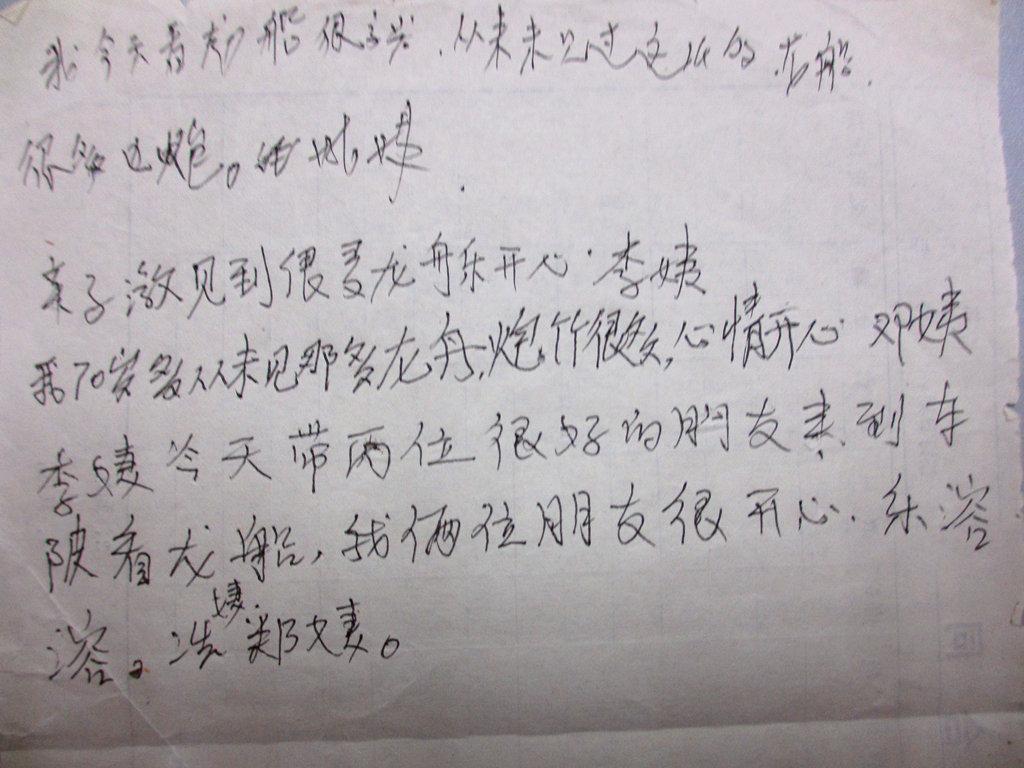 我今天看龙船很高兴.从来未见过这么多龙船.
很多烧炮。姨
亲子澈见到很多龙舟乐开心·李姨
我70岁多从未见那多龙舟,炮竹很多,心情开心 邓姨
李姨今天带两位很好的朋友来到车
陂看龙船,我俩位朋友很开心.乐溶
溶。冼姨.郑姨。